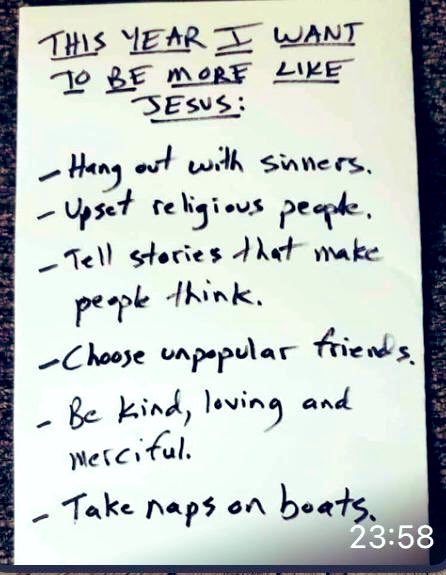 THIS YEAR I WANT
TO BE MORE LIKE
JESUS:
- Hang out with sinners.
- Upset religious people.
- Tell stories that make
people think.
- Choose unpopular friends.
- Be kind, loving and
merciful.
- Take naps on boats.
23:58